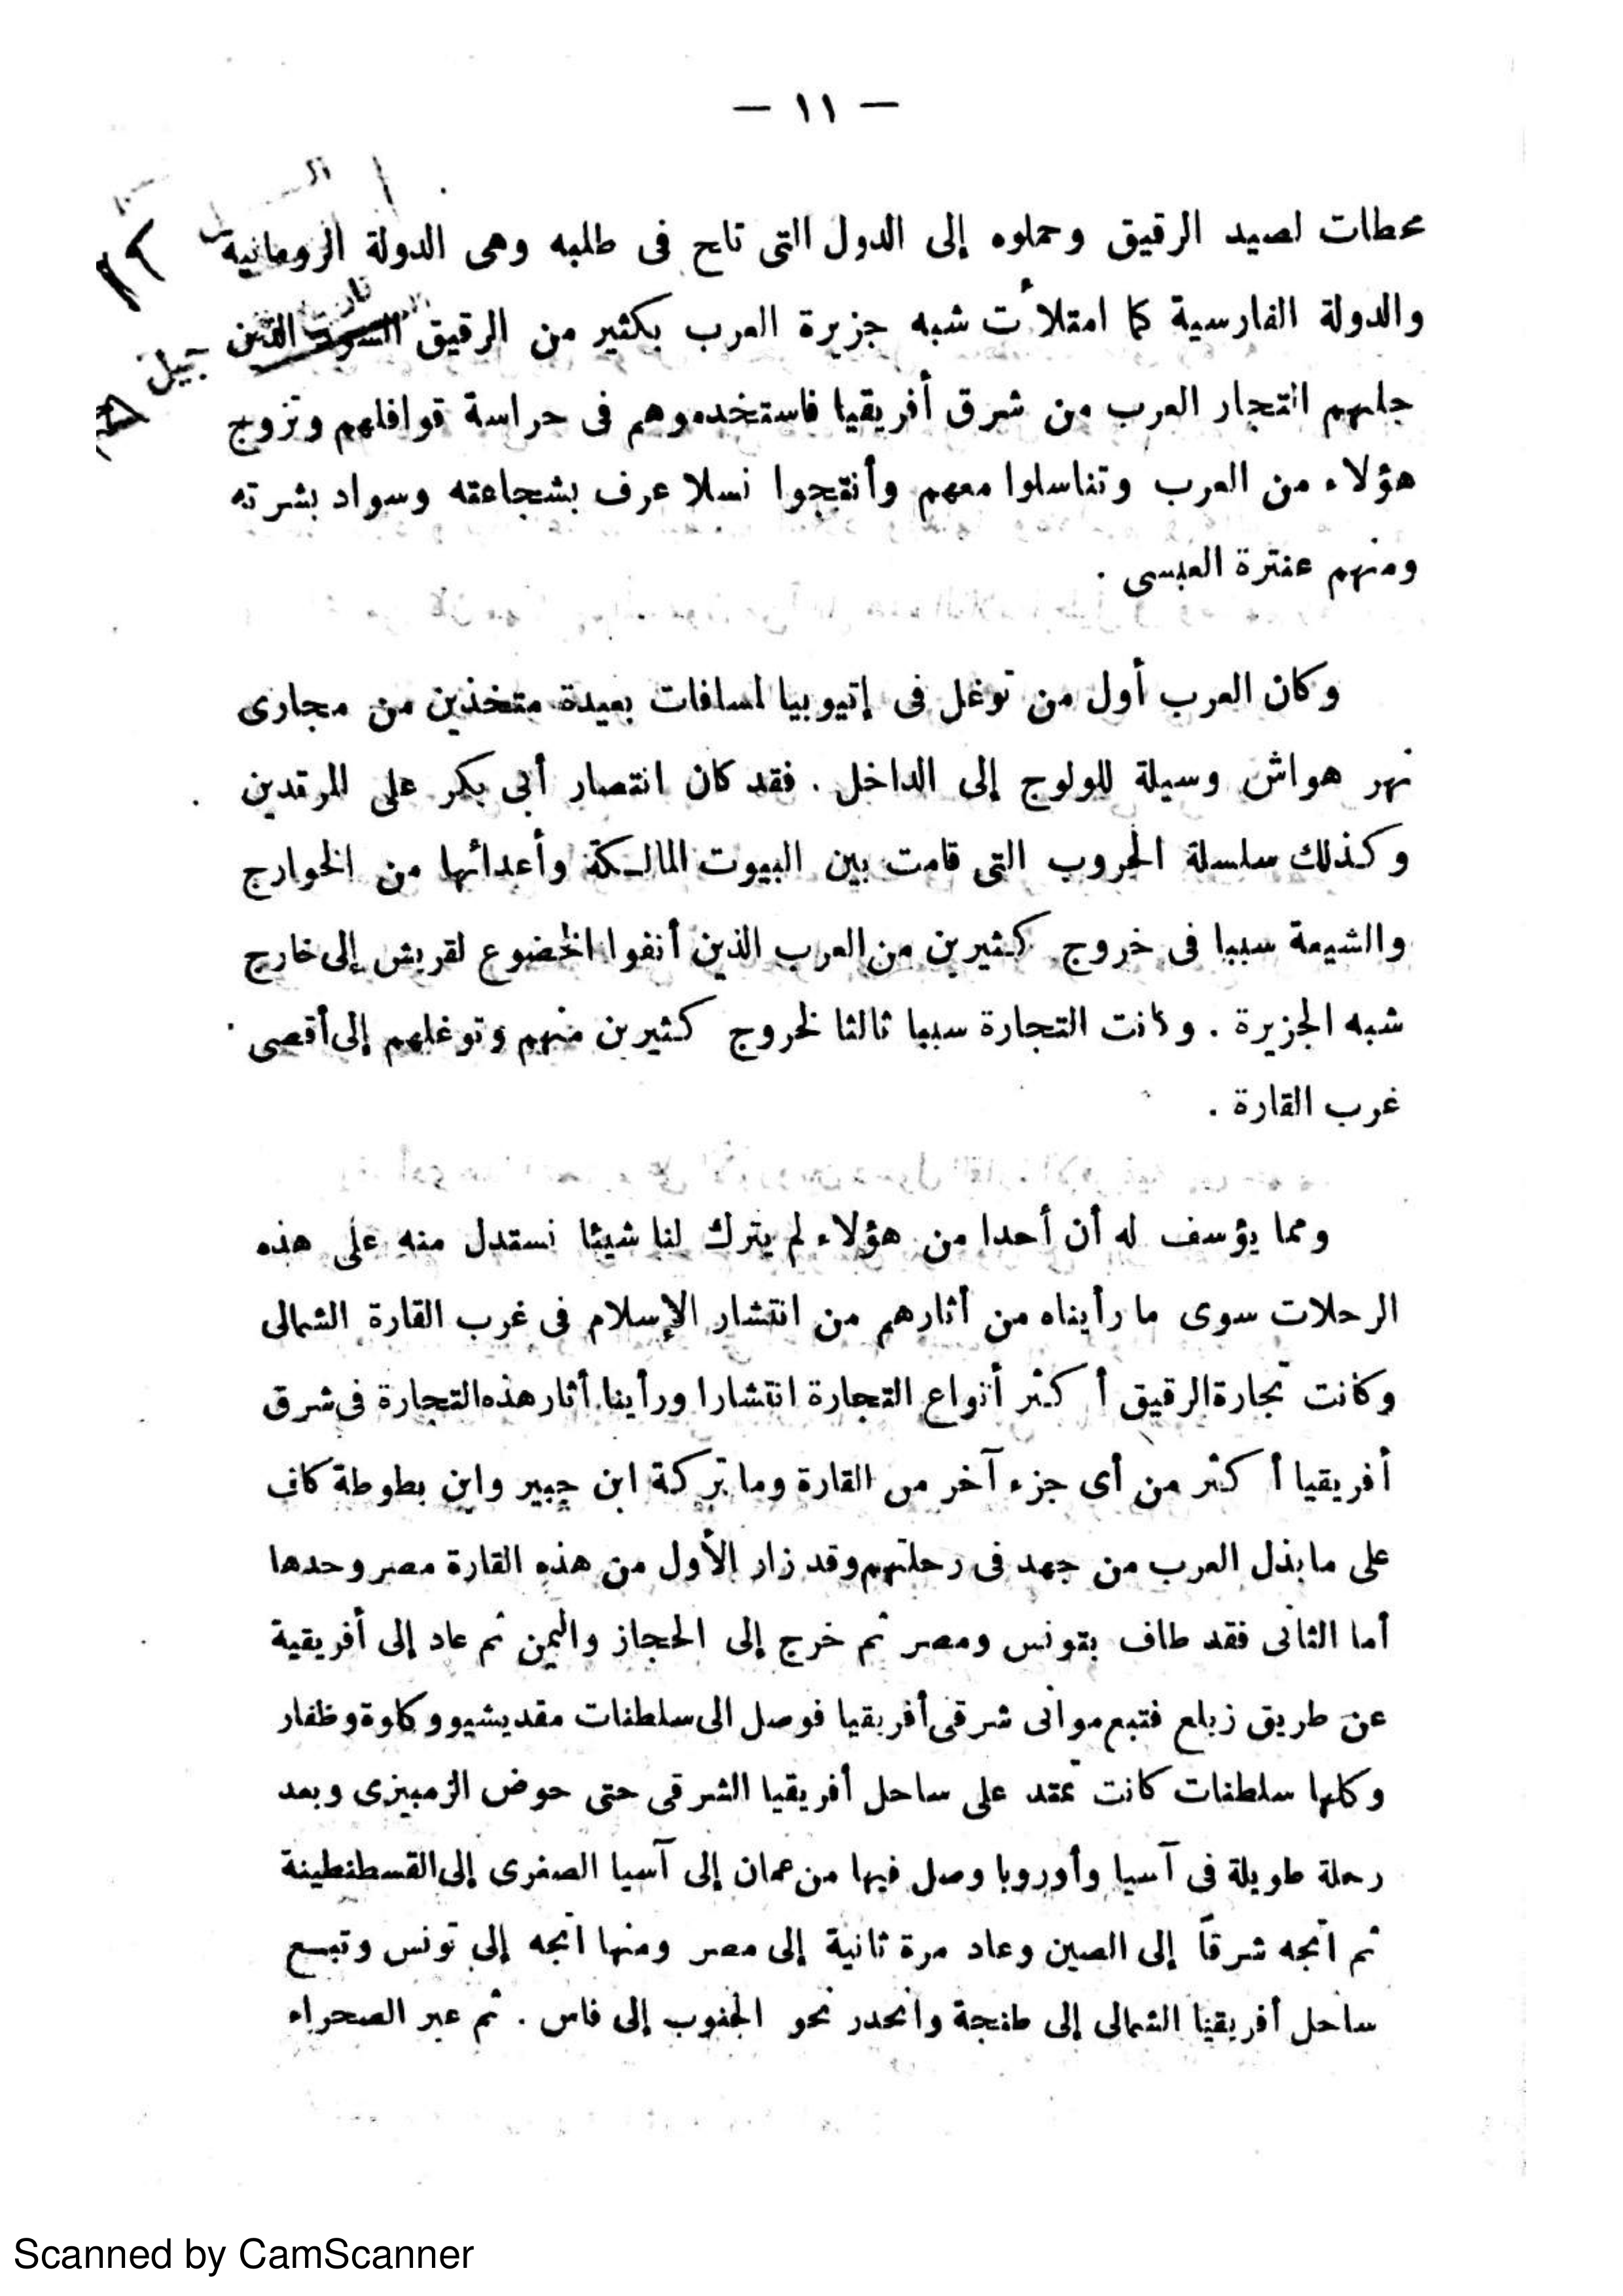 — ١١ —
محطات لصيد الرقيق وحملوه إلى الدول التى تلح فى طلبه وهى الدولة الرومانية
والدولة الفارسية كما امتلأت شبه جزيرة العرب بكثير من الرقيق الذين
جلبهم التجار العرب من شرق أفريقيا فاستخدموهم فى حراسة قوافلهم وتزوج
هؤلاء من العرب وتناسلوا معهم وأنتجوا نسلا عرف بشجاعته وسواد بشرته
ومنهم عنترة العبسى .
وكان العرب أول من توغل فى إتيوبيا لمسافات بعيدة متخذين من مجارى
نهر هواش وسيلة للولوج إلى الداخل . فقد كان انتصار أبى بكر على المرتدين
وكذلك سلسلة الحروب التى قامت بين البيوت المالكة وأعدائها من الخوارج
والشيعة سببا فى خروج كثيرين من العرب الذين أنفوا الخضوع لقريش إلى خارج
شبه الجزيرة . وكانت التجارة سببا ثالثا لخروج كثيرين منهم وتوغلهم إلى أقصى
غرب القارة .
ومما يؤسف له أن أحدا من هؤلاء لم يترك لنا شيئا نستدل منه على هذه
الرحلات سوى ما رأيناه من أثارهم من انتشار الإسلام فى غرب القارة الشمالى
وكانت تجارة الرقيق أكثر أنواع التجارة انتشارا ورأينا أثار هذه التجارة فى شرق
أفريقيا أكثر من أى جزء آخر من القارة وما تركة ابن جبير وابن بطوطة كاف
على ما بذل العرب من جهد فى رحلتهم وقد زار الأول من هذه القارة مصر وحدها
أما الثانى فقد طاف بتونس ومصر ثم خرج إلى الحجاز واليمن ثم عاد إلى أفريقية
عن طريق زيلع فتبع موانى شرقى أفريقيا فوصل الى سلطنات مقديشيو وكلوة وظفار
وكلها سلطنات كانت تمتد على ساحل أفريقيا الشرقى حتى حوض الزمبيزى وبعد
رحلة طويلة فى آسيا وأوروبا وصل فيها من عمان إلى آسيا الصغرى إلى القسطنطينة
ثم اتجه شرقاً إلى الصين وعاد مرة ثانية إلى مصر ومنها اتجه إلى تونس وتبع
ساحل أفريقيا الشمالى إلى طنجة وانحدر نحو الجنوب إلى فاس . ثم عبر الصحراء
Scanned by CamScanner